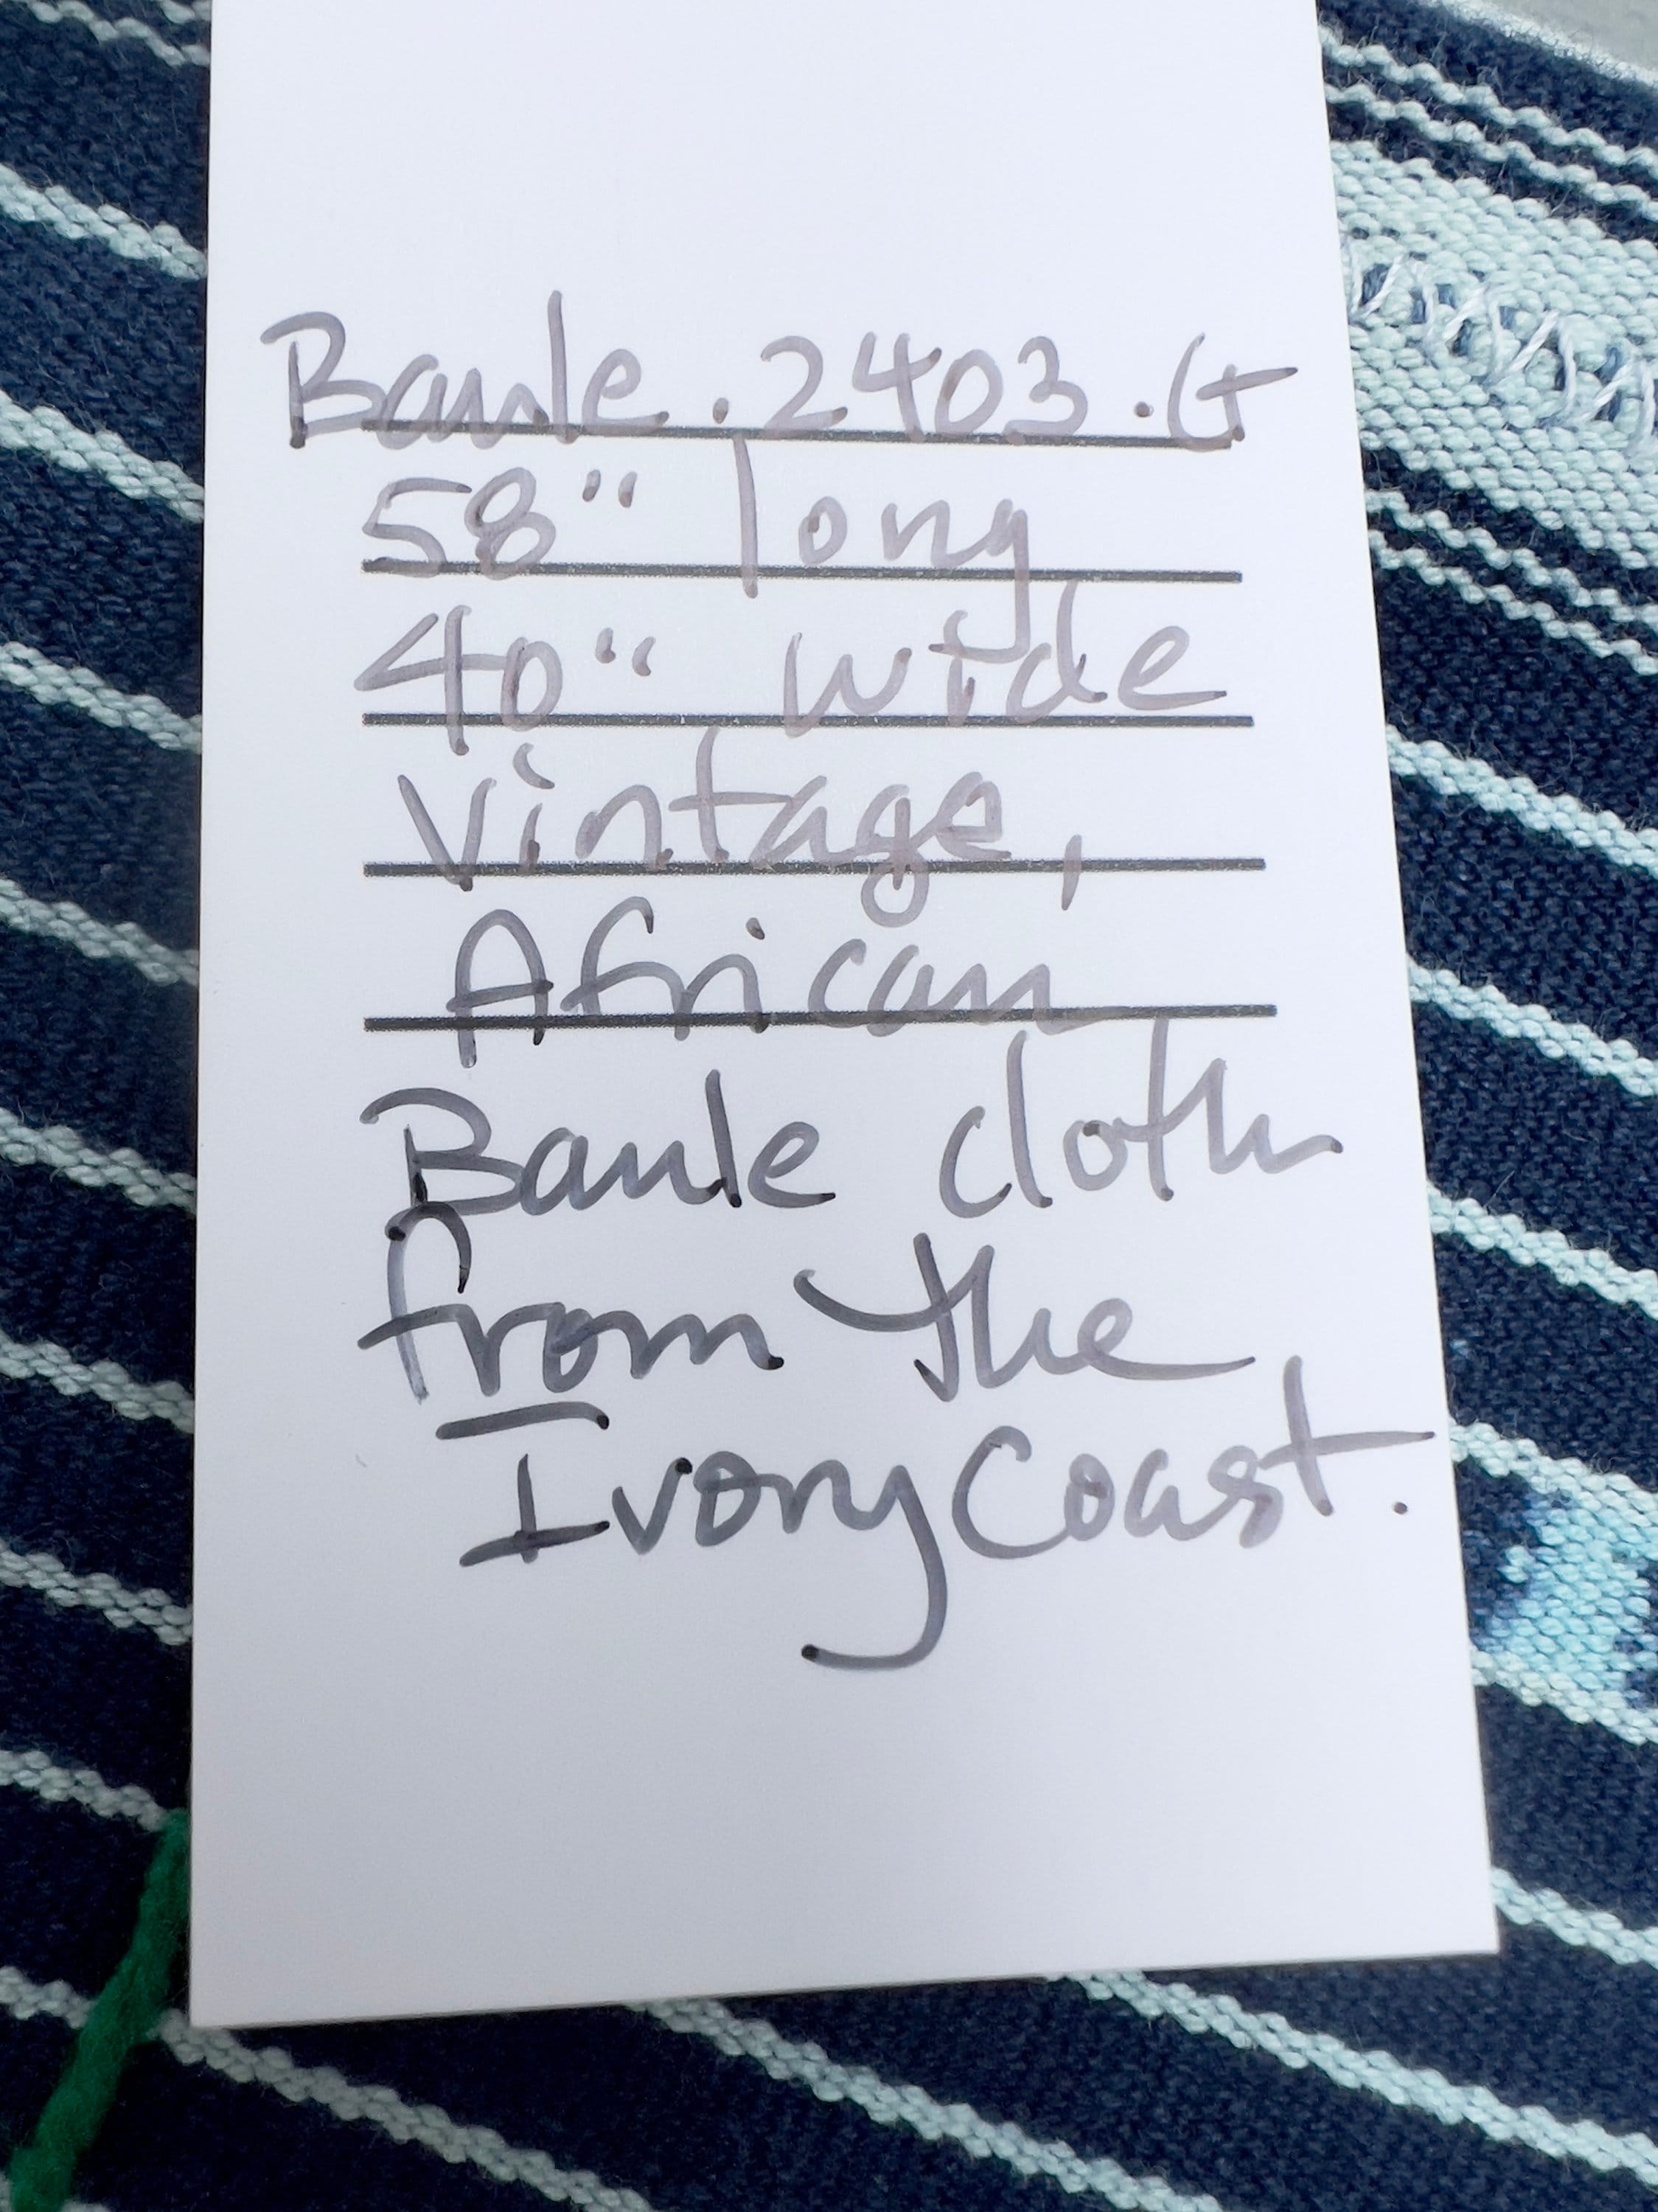 Baule.2403.G
58" long
40" wide
Vintage,
African
Baule cloth
from the
Ivory Coast.